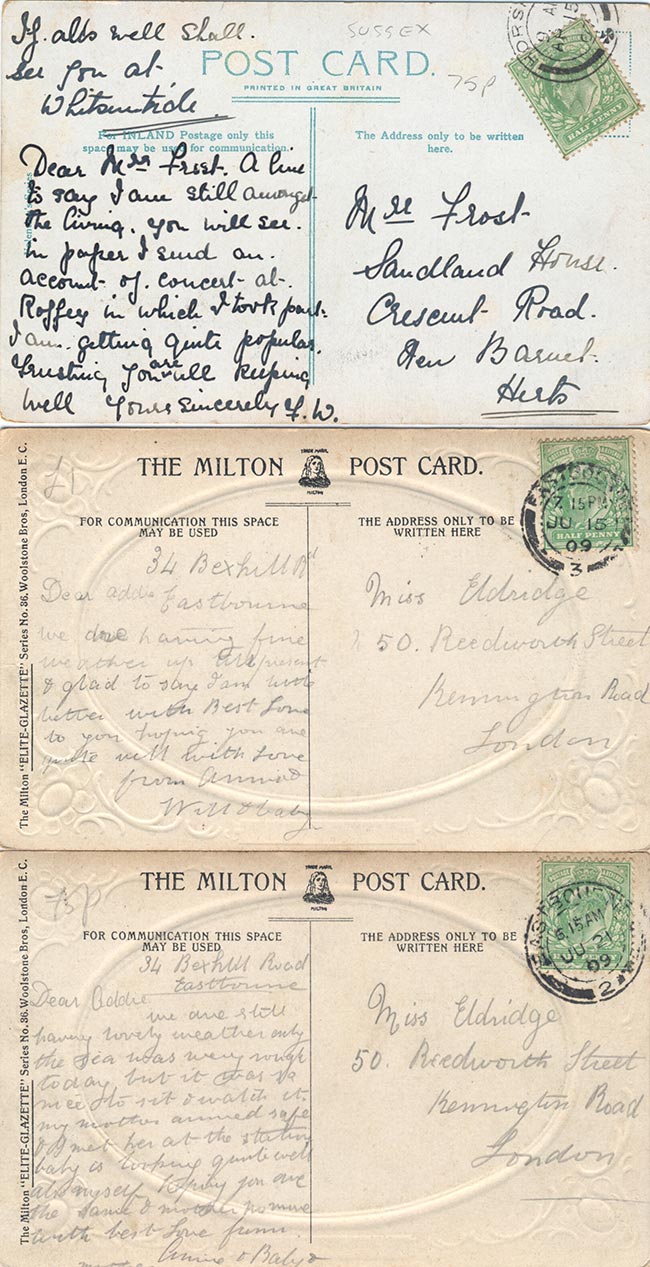 If alls well shall.
see you at
Whitsuntide.
SUSSEX
POST CARD.
PRINTED IN GREAT BRITAIN
75p
HALF PENNY
For INLAND Postage only this
space may be used for communication.
The Address only to be written
here.
Dear Mrs Frost. A line
to say I am still amongst
the living. you will see.
in paper I send an.
account of. concert at.
Roffey in which I took part.
I am. getting quite popular.
Trusting you are all keeping
well Yours Sincerely F.W.
Mrs Frost
Sandland House.
Crescent Road.
New Barnet.
Herts
The Milton "ELITE-GLAZETTE" Series No. 36. Woolstone Bros, London E. C.
£1
THE MILTON POST CARD.
TRADE MARK
MILTON
EASTBOURNE
7.15 PM
JU 15
09
3
HALF PENNY
FOR COMMUNICATION THIS SPACE
MAY BE USED
THE ADDRESS ONLY TO BE
WRITTEN HERE
34 Bexhill Rd
Eastbourne
Dear Addie
we are having fine
weather up till present
& glad to say I am little
better with Best Love
to you hoping you are
quite well with Love
from Annie &
Will & baby
Miss Eldridge
50. Reedworth Street
Kennington Road
London
The Milton "ELITE-GLAZETTE" Series No. 36. Woolstone Bros, London E. C.
75p
THE MILTON POST CARD.
TRADE MARK
MILTON
EASTBOURNE
5.15 AM
JU 21
09
2
FOR COMMUNICATION THIS SPACE
MAY BE USED
THE ADDRESS ONLY TO BE
WRITTEN HERE
34 Bexhill Road
Eastbourne
Dear Addie
we are still
having lovely weather only
the sea was very rough
today but it was so
nice to sit & watch it.
my mother arrived safe
& I met her at the station
baby is looking quite well
also myself hoping you are
the same & mother
with best Love from.
Annie & Baby &
Miss Eldridge
50. Reedworth Street
Kennington Road
London.